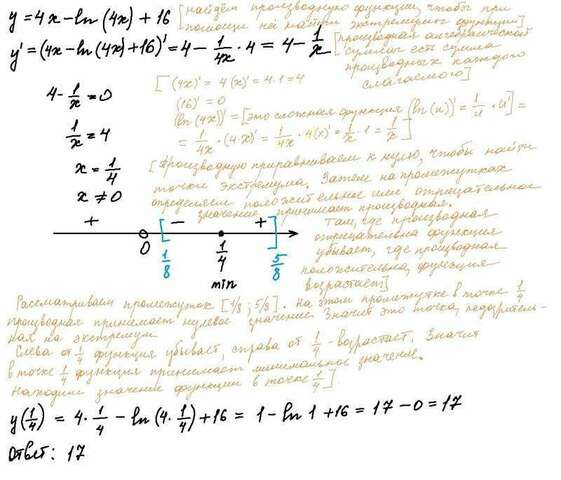 y = 4x - ln(4x) + 16 [найдём производную функции, чтобы при
помощи неё найти экстремумы функции]
y' = (4x - ln(4x) + 16)' = 4 - 1/4x · 4 = 4 - 1/x [производная алгебраической
суммы есть сумма
производных каждого
слагаемого]
[(4x)' = 4(x)' = 4·1 = 4
(16)' = 0
(ln(4x))' = [это сложная функция (ln(u))' = 1/u · u'] =
= 1/4x · (4x)' = 1/4x · 4(x)' = 1/x · 1 = 1/x]
4 - 1/x = 0
1/x = 4
x = 1/4
x ≠ 0
[Производную приравниваем к нулю, чтобы найти
точки экстремума. Затем на промежутках
определяем положительное или отрицательное
значение принимает производная.
Там, где производная
отрицательна функция
убывает, где производная
положительна, функция
возрастает]
+ [ - + ]
0 1/8 1/4 5/8
min
Рассматриваем промежуток [1/8; 5/8]. На этом промежутке в точке 1/4
производная принимает нулевое значение. Значит это точка, подозритель-
ная на экстремум
Слева от 1/4 функция убывает, справа от 1/4 - возрастает. Значит
в точке 1/4 функция принимает минимальное значение.
Находим значение функции в точке 1/4]
y(1/4) = 4 · 1/4 - ln(4 · 1/4) + 16 = 1 - ln 1 + 16 = 17 - 0 = 17
Ответ: 17